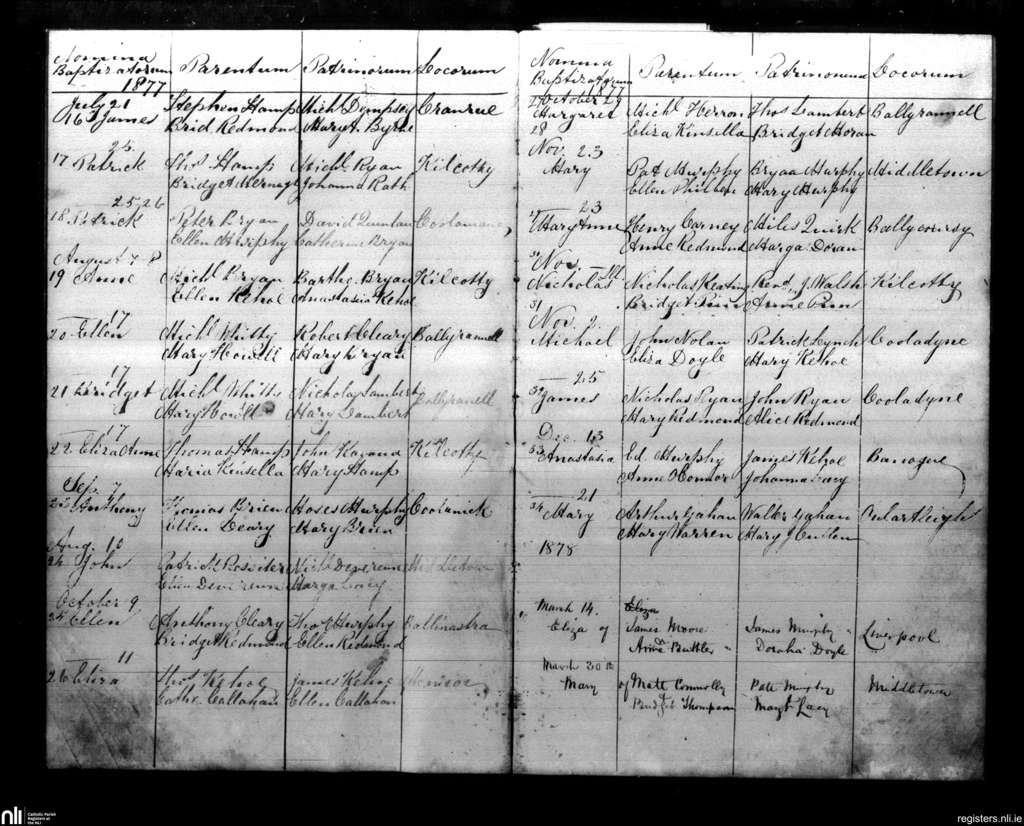 Nomina Baptizatorum Parentum Patrinorum Locorum
1877
July 21 Stephen Hamp Michl Dempsey Cranrue
16 James Brid Redmond Mary A. Byrne
25
17 Patrick Thos Hamp Michl Ryan Kilcotty
Bridget Johanna Rath
25, 26
18 Patrick Peter Bryan David Quinlan
Ellen Murphy Catherine Bryan
August 7 8
19 Anne Michl Bryan Barthw. Bryan Kilcotty
Ellen Kehoe Anastasia Kehoe
17
20 Ellen Michl Whitty Robert Cleary Ballygranell
Mary Howlett Mary Bryan
17
21 Bridget Michl Whitty Nicholas Lambert
Mary Howlett Mary Lambert
17
22 Eliza Anne Thomas Hamp John Kilcotty
Maria Kinsella Mary Hamp
Sep. 7
23 Anthony Thomas Brien Moses Murphy Coolanick
Ellen Leary Mary Brien
Aug. 10
24 John Patrick Rossiter Nich Devereux Middletown
Eliza Devereux Marga Lacy
October 9
25 Ellen Anthony Cleary Thos Murphy Ballinastra
Bridget Redmond Ellen Redmond
11
26 Eliza Thos Kehoe James Kehoe
Cathe. Callahan Ellen Callahan
Nomina Baptizatorum Parentum Patrinorum Locorum
1877
27 October 29
Margaret Michl Herron Thos Lambert Ballyrannell
28 Eliza Kinsella Bridget Horan
Nov. 23
Mary Pat Murphy Bryan Murphy Middletown
Ellen Mary Murphy
23
Mary Anne Henry Carney Miles Quirk
Anne Redmond Marga. Doran
Nov.
Nicholas Nicholas Keating Revd J. Walsh Kilcotty
31 Bridget Anne
Nov. 2.
Michael John Nolan Patrick Lynch Cooladyne
Eliza Doyle Mary Kehoe
25
32 James Nicholas Ryan John Ryan Cooladyne
Mary Redmond Alice Redmond
Dec. 13
33 Anastasia Ed. Murphy James Kehoe Banogue
Anne O'Connor Johanna Lacy
21
34 Mary Arthur Gahan Walter Gahan Oulartleigh
Mary Warren Mary
1878
March 14. Eliza
Eliza of James Moore James Murphy Liverpool
Anne Buttler Dorotha Doyle
March 30th
Mary of Matt Connolly Patt Murphy Middletown
Bridget Thompson Mary Lacy
nli Catholic Parish Registers at the NLI
registers.nli.ie